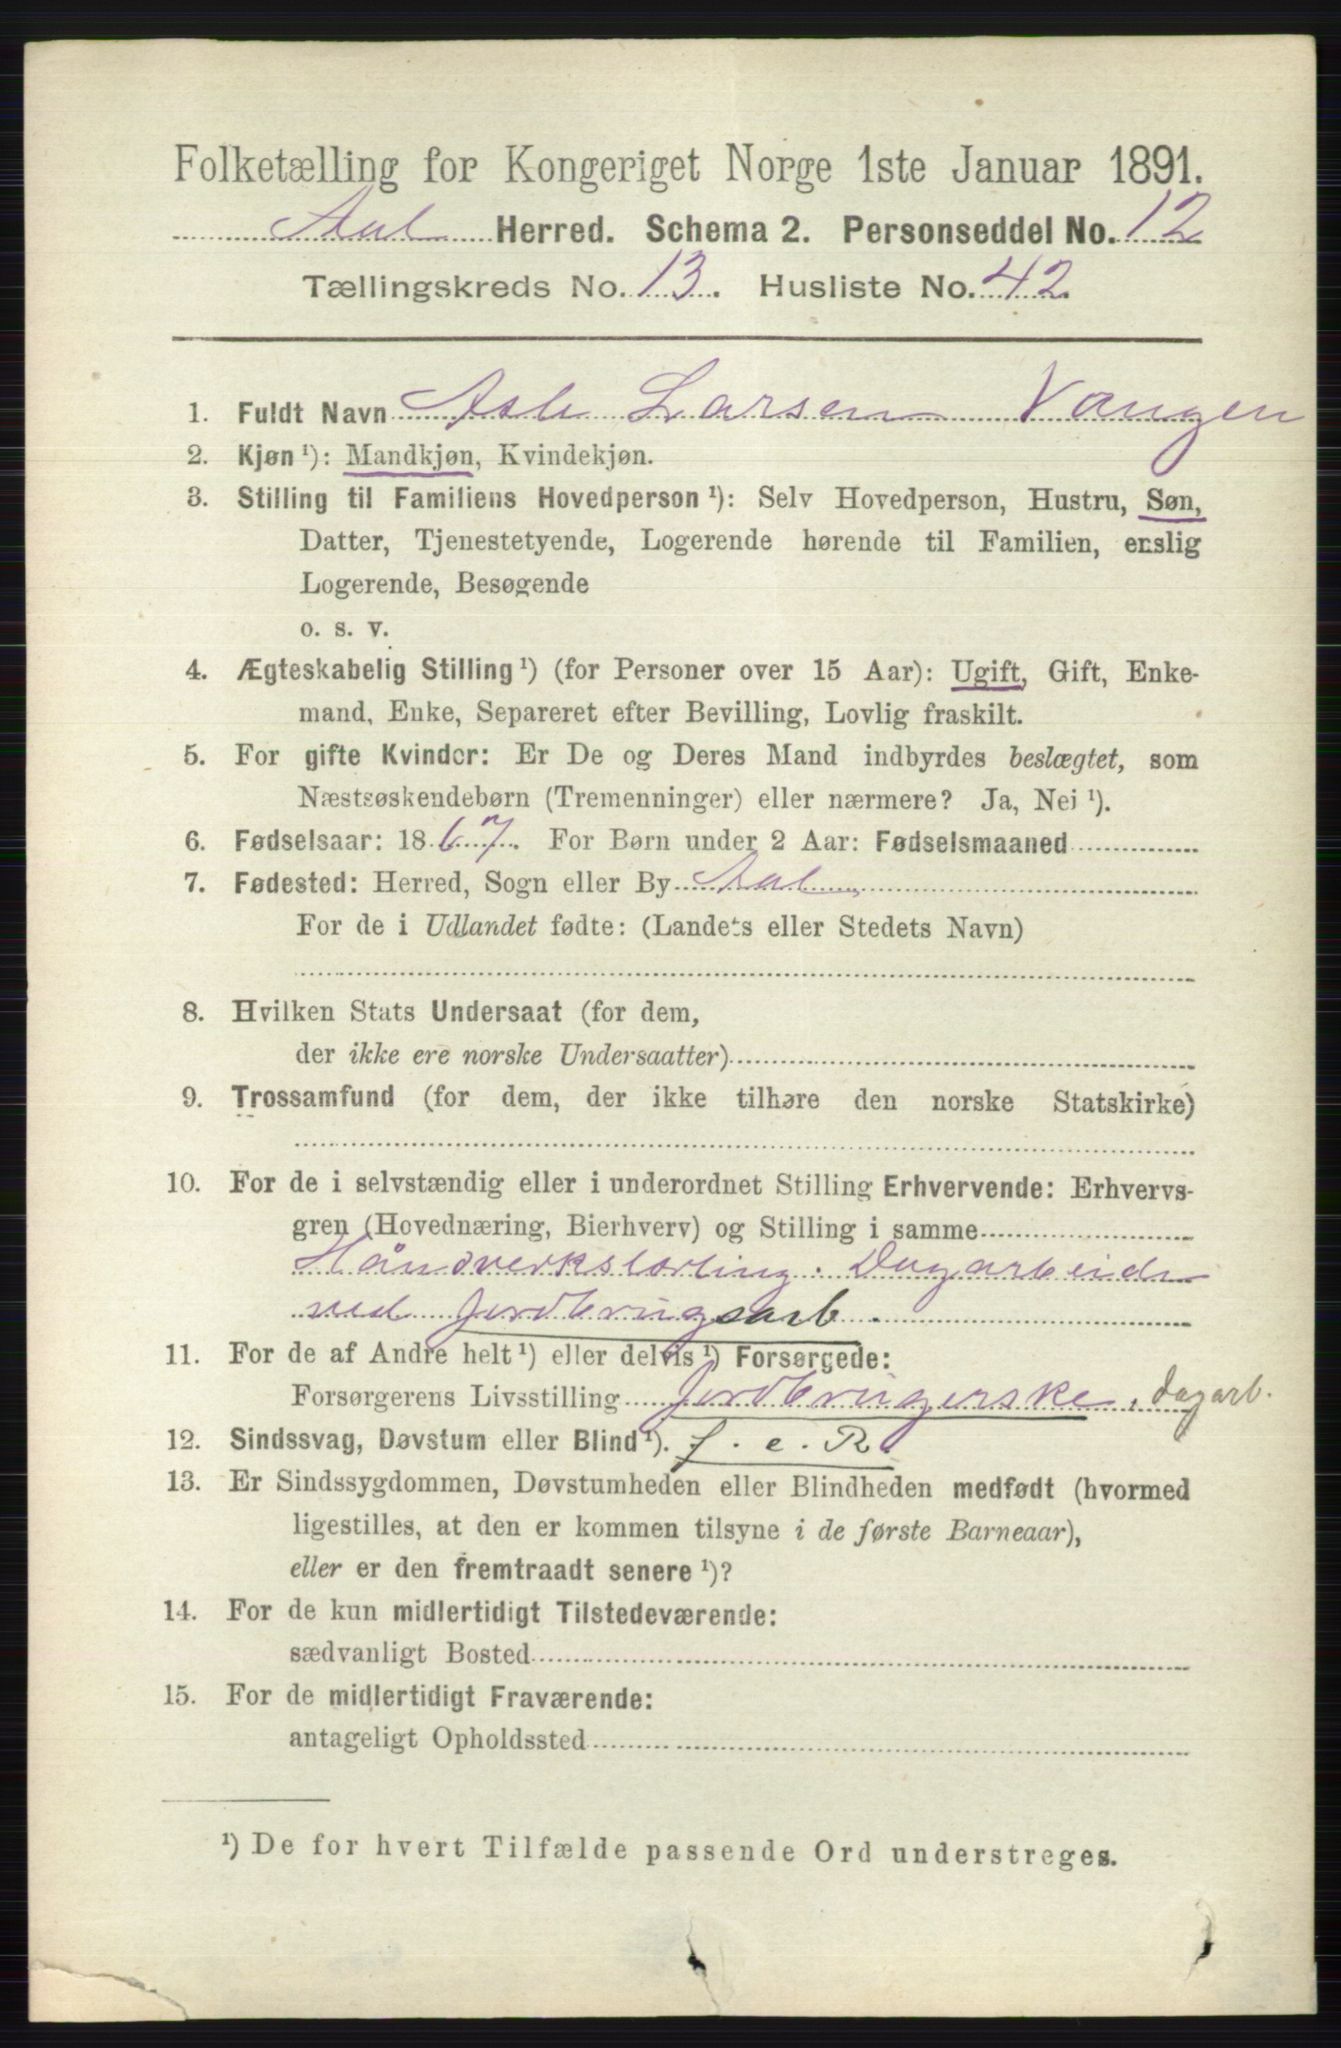 Folketælling for Kongeriget Norge 1ste Januar 1891.
Aal Herred. Schema 2. Personseddel No. 12
Tællingskreds No. 13. Husliste No. 42
1. Fuldt Navn Asle Larsen Vangen
2. Kjøn ¹): Mandkjøn, Kvindekjøn.
3. Stilling til Familiens Hovedperson ¹): Selv Hovedperson, Hustru, Søn,
Datter, Tjenestetyende, Logerende hørende til Familien, enslig
Logerende, Besøgende
o. s. v.
4. Ægteskabelig Stilling ¹) (for Personer over 15 Aar): Ugift, Gift, Enke-
mand, Enke, Separeret efter Bevilling, Lovlig fraskilt.
5. For gifte Kvinder: Er De og Deres Mand indbyrdes beslægtet, som
Næstsøskendebørn (Tremenninger) eller nærmere? Ja, Nei ¹).
6. Fødselsaar: 1867. For Børn under 2 Aar: Fødselsmaaned
7. Fødested: Herred, Sogn eller By Aal
For de i Udlandet fødte: (Landets eller Stedets Navn)
8. Hvilken Stats Undersaat (for dem,
der ikke ere norske Undersaatter)
9. Trossamfund (for dem, der ikke tilhøre den norske Statskirke)
10. For de i selvstændig eller i underordnet Stilling Erhvervende: Erhvervs-
gren (Hovednæring, Bierhverv) og Stilling i samme
Håndverkslærling. Dagarbeider
ved Jordbrugsarb.
11. For de af Andre helt ¹) eller delvis ¹) Forsørgede:
Forsørgerens Livsstilling Jordbrugerske, dagarb.
12. Sindssvag, Døvstum eller Blind ¹). f. e. R.
13. Er Sindssygdommen, Døvstumheden eller Blindheden medfødt (hvormed
ligestilles, at den er kommen tilsyne i de første Barneaar),
eller er den fremtraadt senere ¹)?
14. For de kun midlertidigt Tilstedeværende:
sædvanligt Bosted
15. For de midlertidigt Fraværende:
antageligt Opholdssted
¹) De for hvert Tilfælde passende Ord understreges.